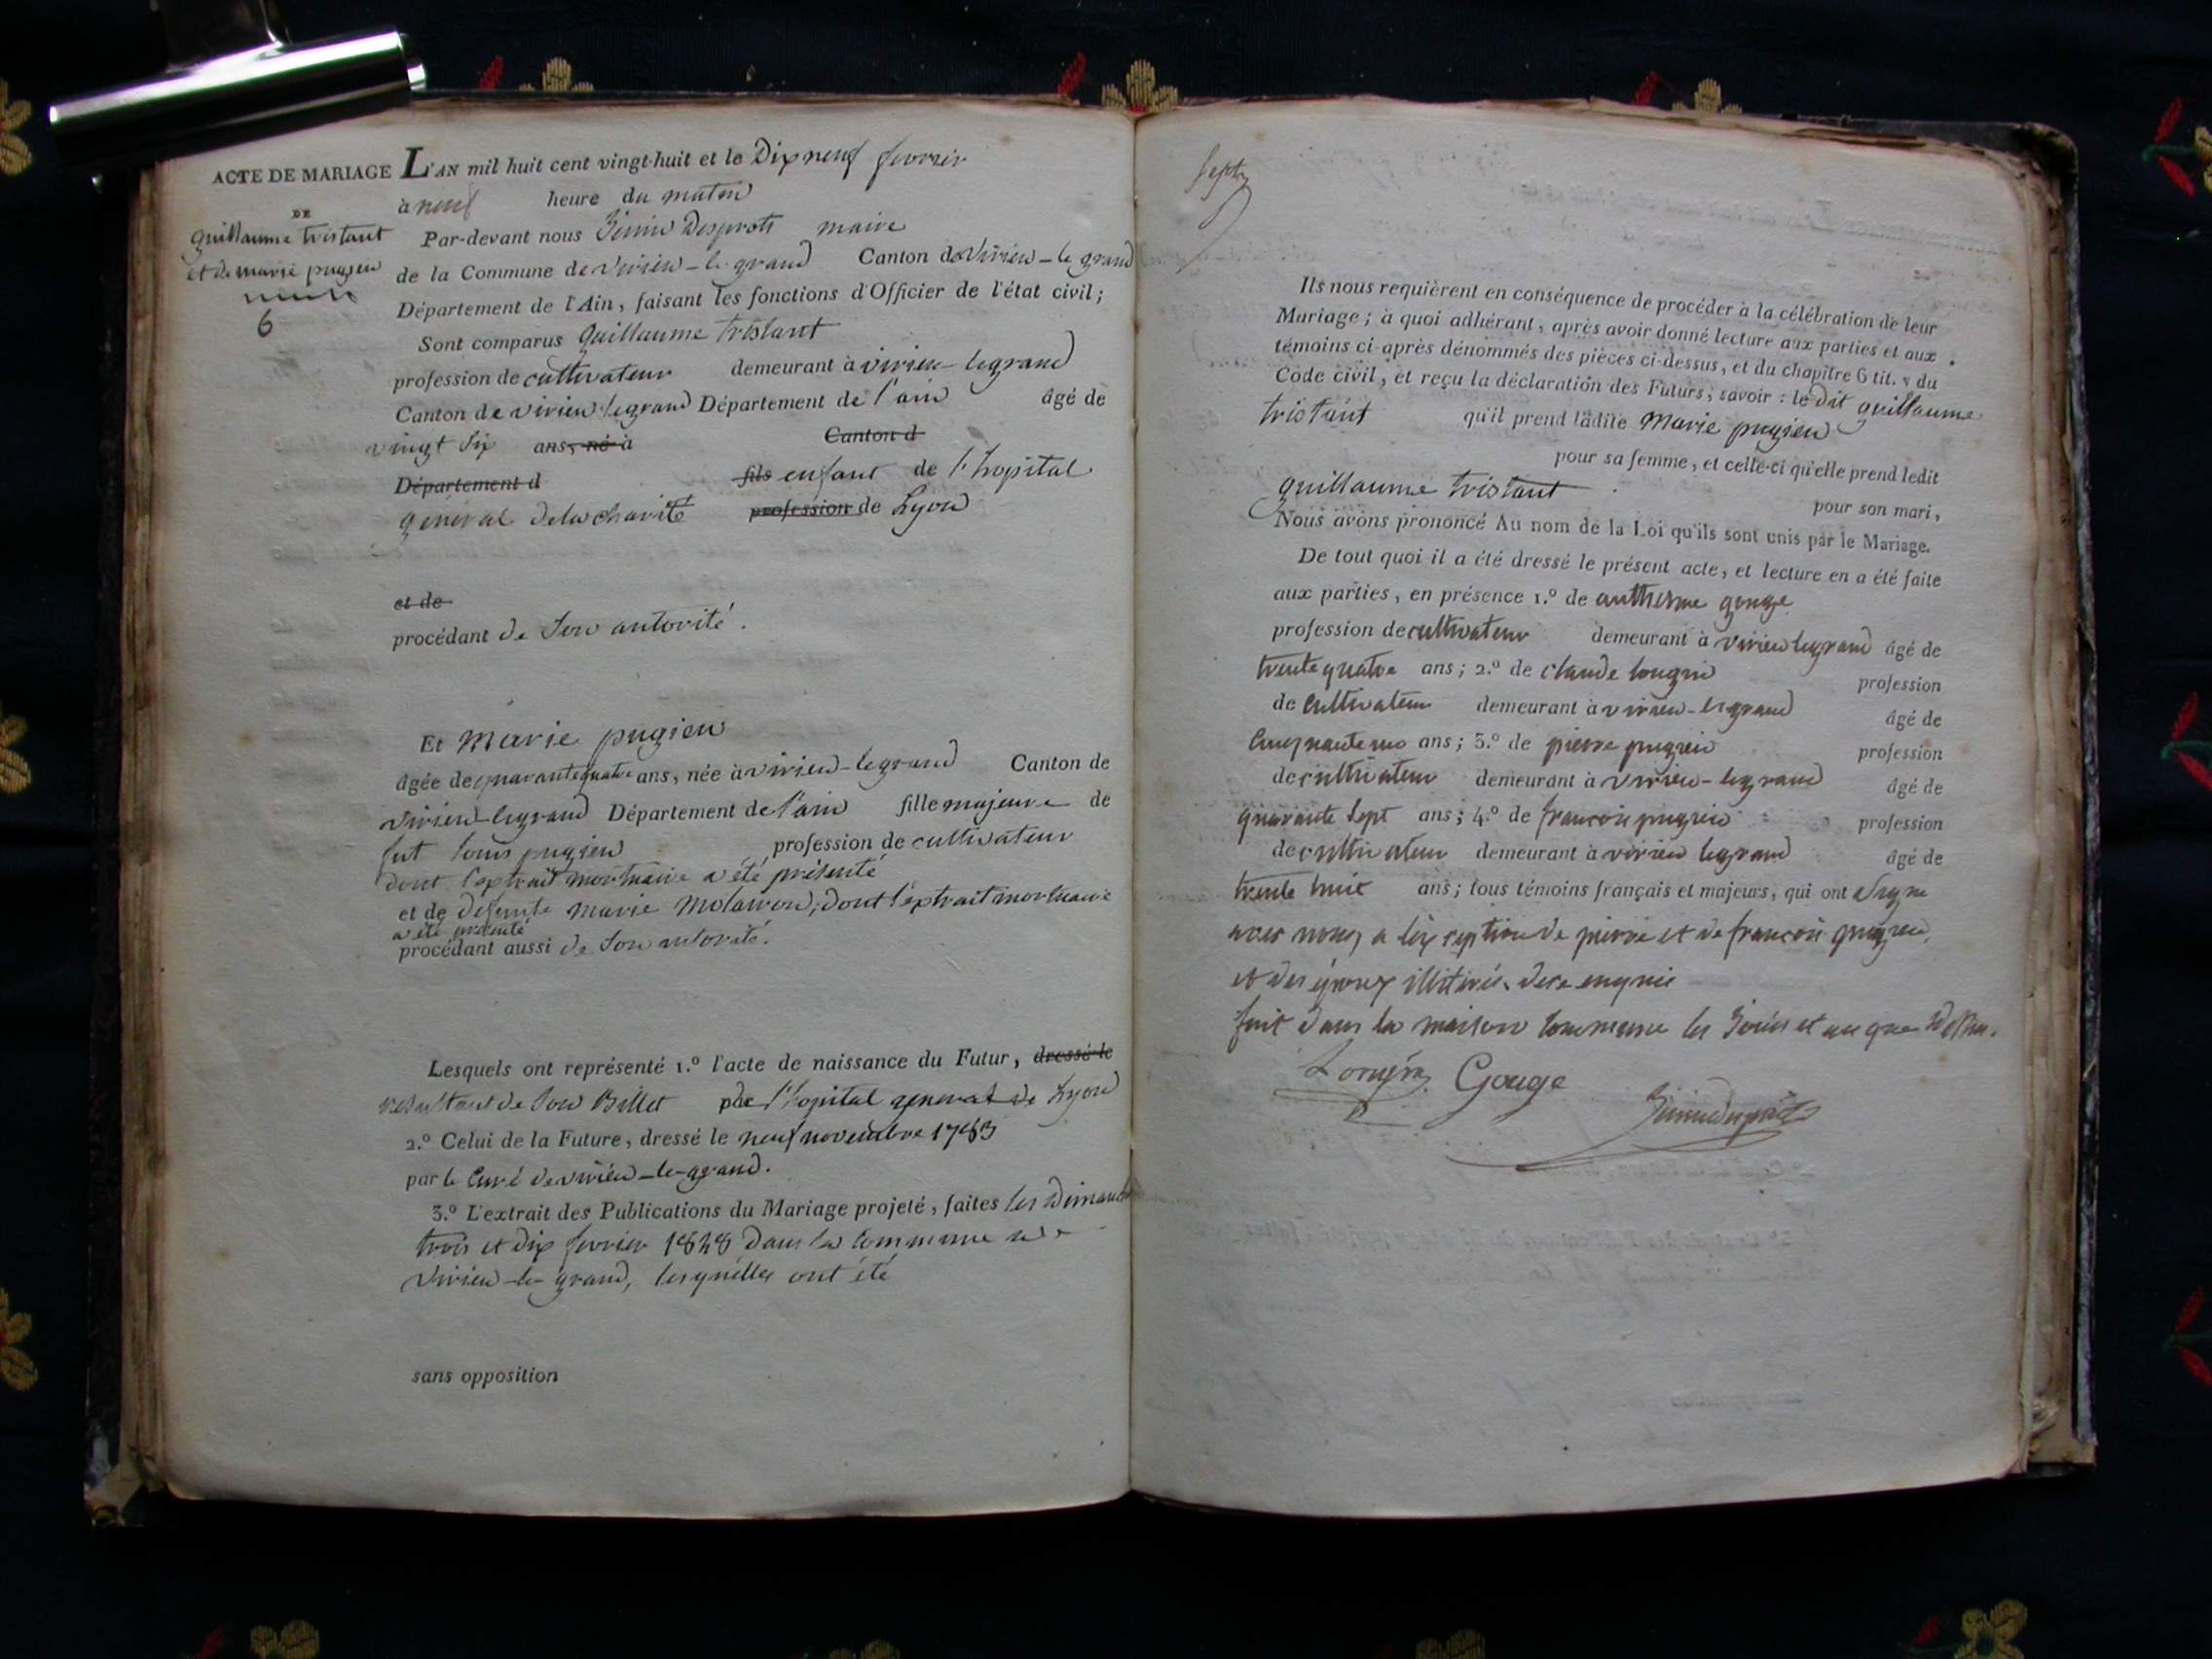 ACTE DE MARIAGE L'AN mil huit cent vingt-huit et le Dix neuf fevrier
DE
à neuf heure du matin
guillaume tristant
Par-devant nous maire
et de marie pugieu
de la Commune de virieu-le-grand Canton de virieu-le grand
6
Département de l'Ain, faisant les fonctions d'Officier de l'état civil;
Sont comparus guillaume tristant
profession de cultivateur demeurant à virieu-legrand
Canton de virieu legrand Département de l'ain âgé de
vingt six ans, né à Canton d
Département d fils enfant de l'hopital
général de la charité profession de Lyon
et de
procédant de son autorité.
Et marie pugieu
âgée de quarante quatre ans, née à virieu-legrand Canton de
virieu-legrand Département de l'ain fille majeure de
fut louis pugieu profession de cultivateur
dont l'extrait mortuaire a été présenté
et de defunte marie molarron, dont l'extrait mortuaire
a été présenté
procédant aussi de son autorité.
Lesquels ont représenté 1.º l'acte de naissance du Futur, dressé le
resultant de son Billet par l'hopital general de Lyon
2.º Celui de la Future, dressé le neuf novembre 1783
par le Curé de virieu-le-grand.
3.º L'extrait des Publications du Mariage projeté, faites les Dimanch
trois et dix fevrier 1828 dans la commune de
virieu-le-grand, lesquelles ont été
sans opposition
Ils nous requièrent en conséquence de procéder à la célébration de leur
Mariage; à quoi adhérant, après avoir donné lecture aux parties et aux
témoins ci-après dénommés des pièces ci-dessus, et du chapitre 6 tit. v du
Code civil, et reçu la déclaration des Futurs, savoir: le dit guillaume
tristant qu'il prend ladite marie pugieu
pour sa femme, et celle-ci qu'elle prend ledit
guillaume tristant
pour son mari,
Nous avons prononcé Au nom de la Loi qu'ils sont unis par le Mariage.
De tout quoi il a été dressé le présent acte, et lecture en a été faite
aux parties, en présence 1.º de anthelme gouge
profession de cultivateur demeurant à virieu legrand âgé de
trente quatre ans; 2.º de claude longin profession
de cultivateur demeurant à virieu-legrand âgé de
ans; 3.º de pierre pugieu profession
de cultivateur demeurant à virieu-legrand âgé de
quarante sept ans; 4.º de francois pugieu profession
de cultivateur demeurant à virieu legrand âgé de
trente huit ans; tous témoins français et majeurs, qui ont signe
avec nous, a l'exception de pierre et de francois pugieu,
et des époux illitérés de ce enquis
fait dans la maison commune les jours et an que dessus.
Longin Gouge